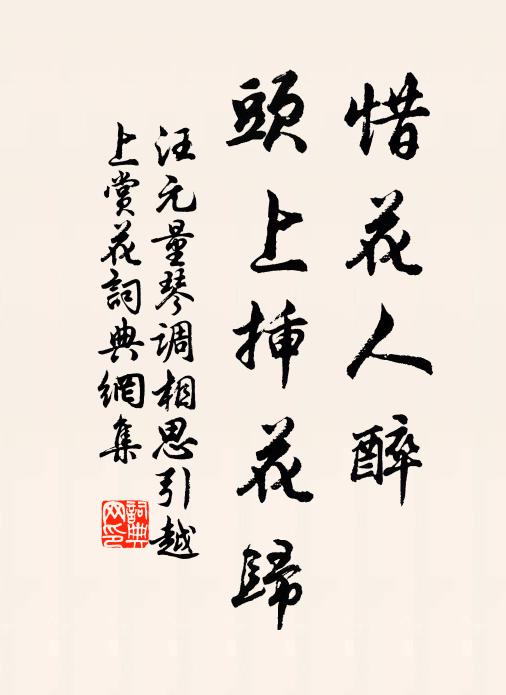 惜花人醉
頭上挿花歸
汪元量琴調相思引越
上賞花詞典網集
詞典
网印